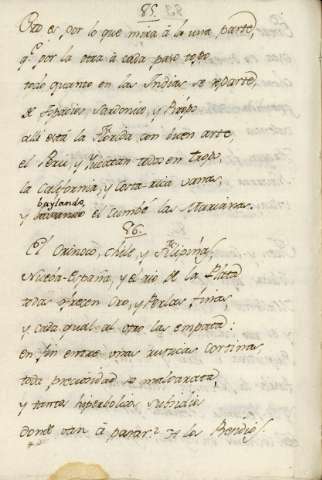 85.
Esto es, por lo que mira à la una parte,
q.e por la otra à cada paso topo
todo quanto en las Indias se reparte,
de Topacios, Sardonios, y Piropo
alli está la Florida con buen arte,
el Perù, y Yucatàn todos en tropa,
la California, y Costa rica varias,
baylando
y el Cumbé las Marianas.
86.
El Orinoco, Chile, y Filipinas,
Nueva-España, y el rio de la Plata
todas ofrecen Oro, y Perlas finas,
y cada qual al otro las empata:
en fin entre unas cortinas,
toda preciosidad se malbarata,
y tantos hiperbolicos subsidios
donde van à parar? A los Bendios.